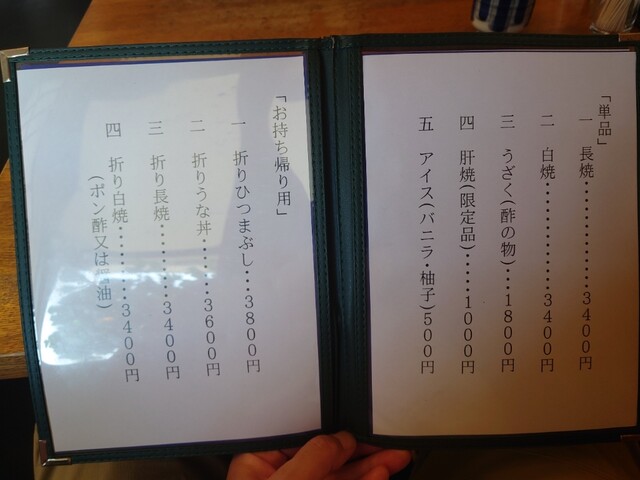 「単品」
一 長焼・・・・・・・・・・・3400円
二 白焼・・・・・・・・・・・3400円
三 うざく(酢の物)・・・1800円
四 肝焼(限定品)・・・・・1000円
五 アイス(バニラ・柚子)500円
「お持ち帰り用」
一 折りひつまぶし・・・3800円
二 折りうな丼・・・・・・3600円
三 折り長焼・・・・・・・・3400円
四 折り白焼・・・・・・・・3400円
(ポン酢又は醤油)